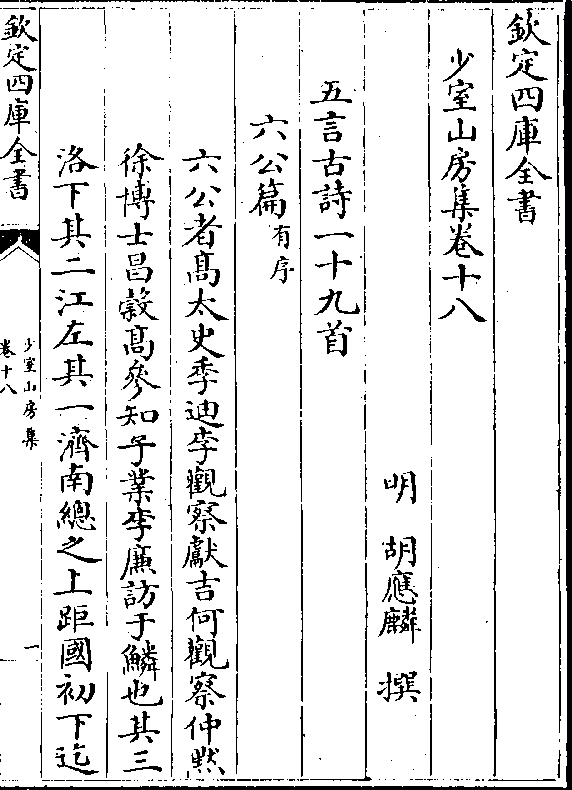 欽定四庫全書
少室山房集卷十八
明 胡應麟 撰
五言古詩一十九首
六公篇有序
六公者髙太史季迪李觀察獻吉何觀察仲黙
徐博士昌榖髙參知子業李廉訪于鱗也其三
洛下其二江左其一濟南總之上距國初下迄
欽定四庫全書
少室山房集
卷十八
一